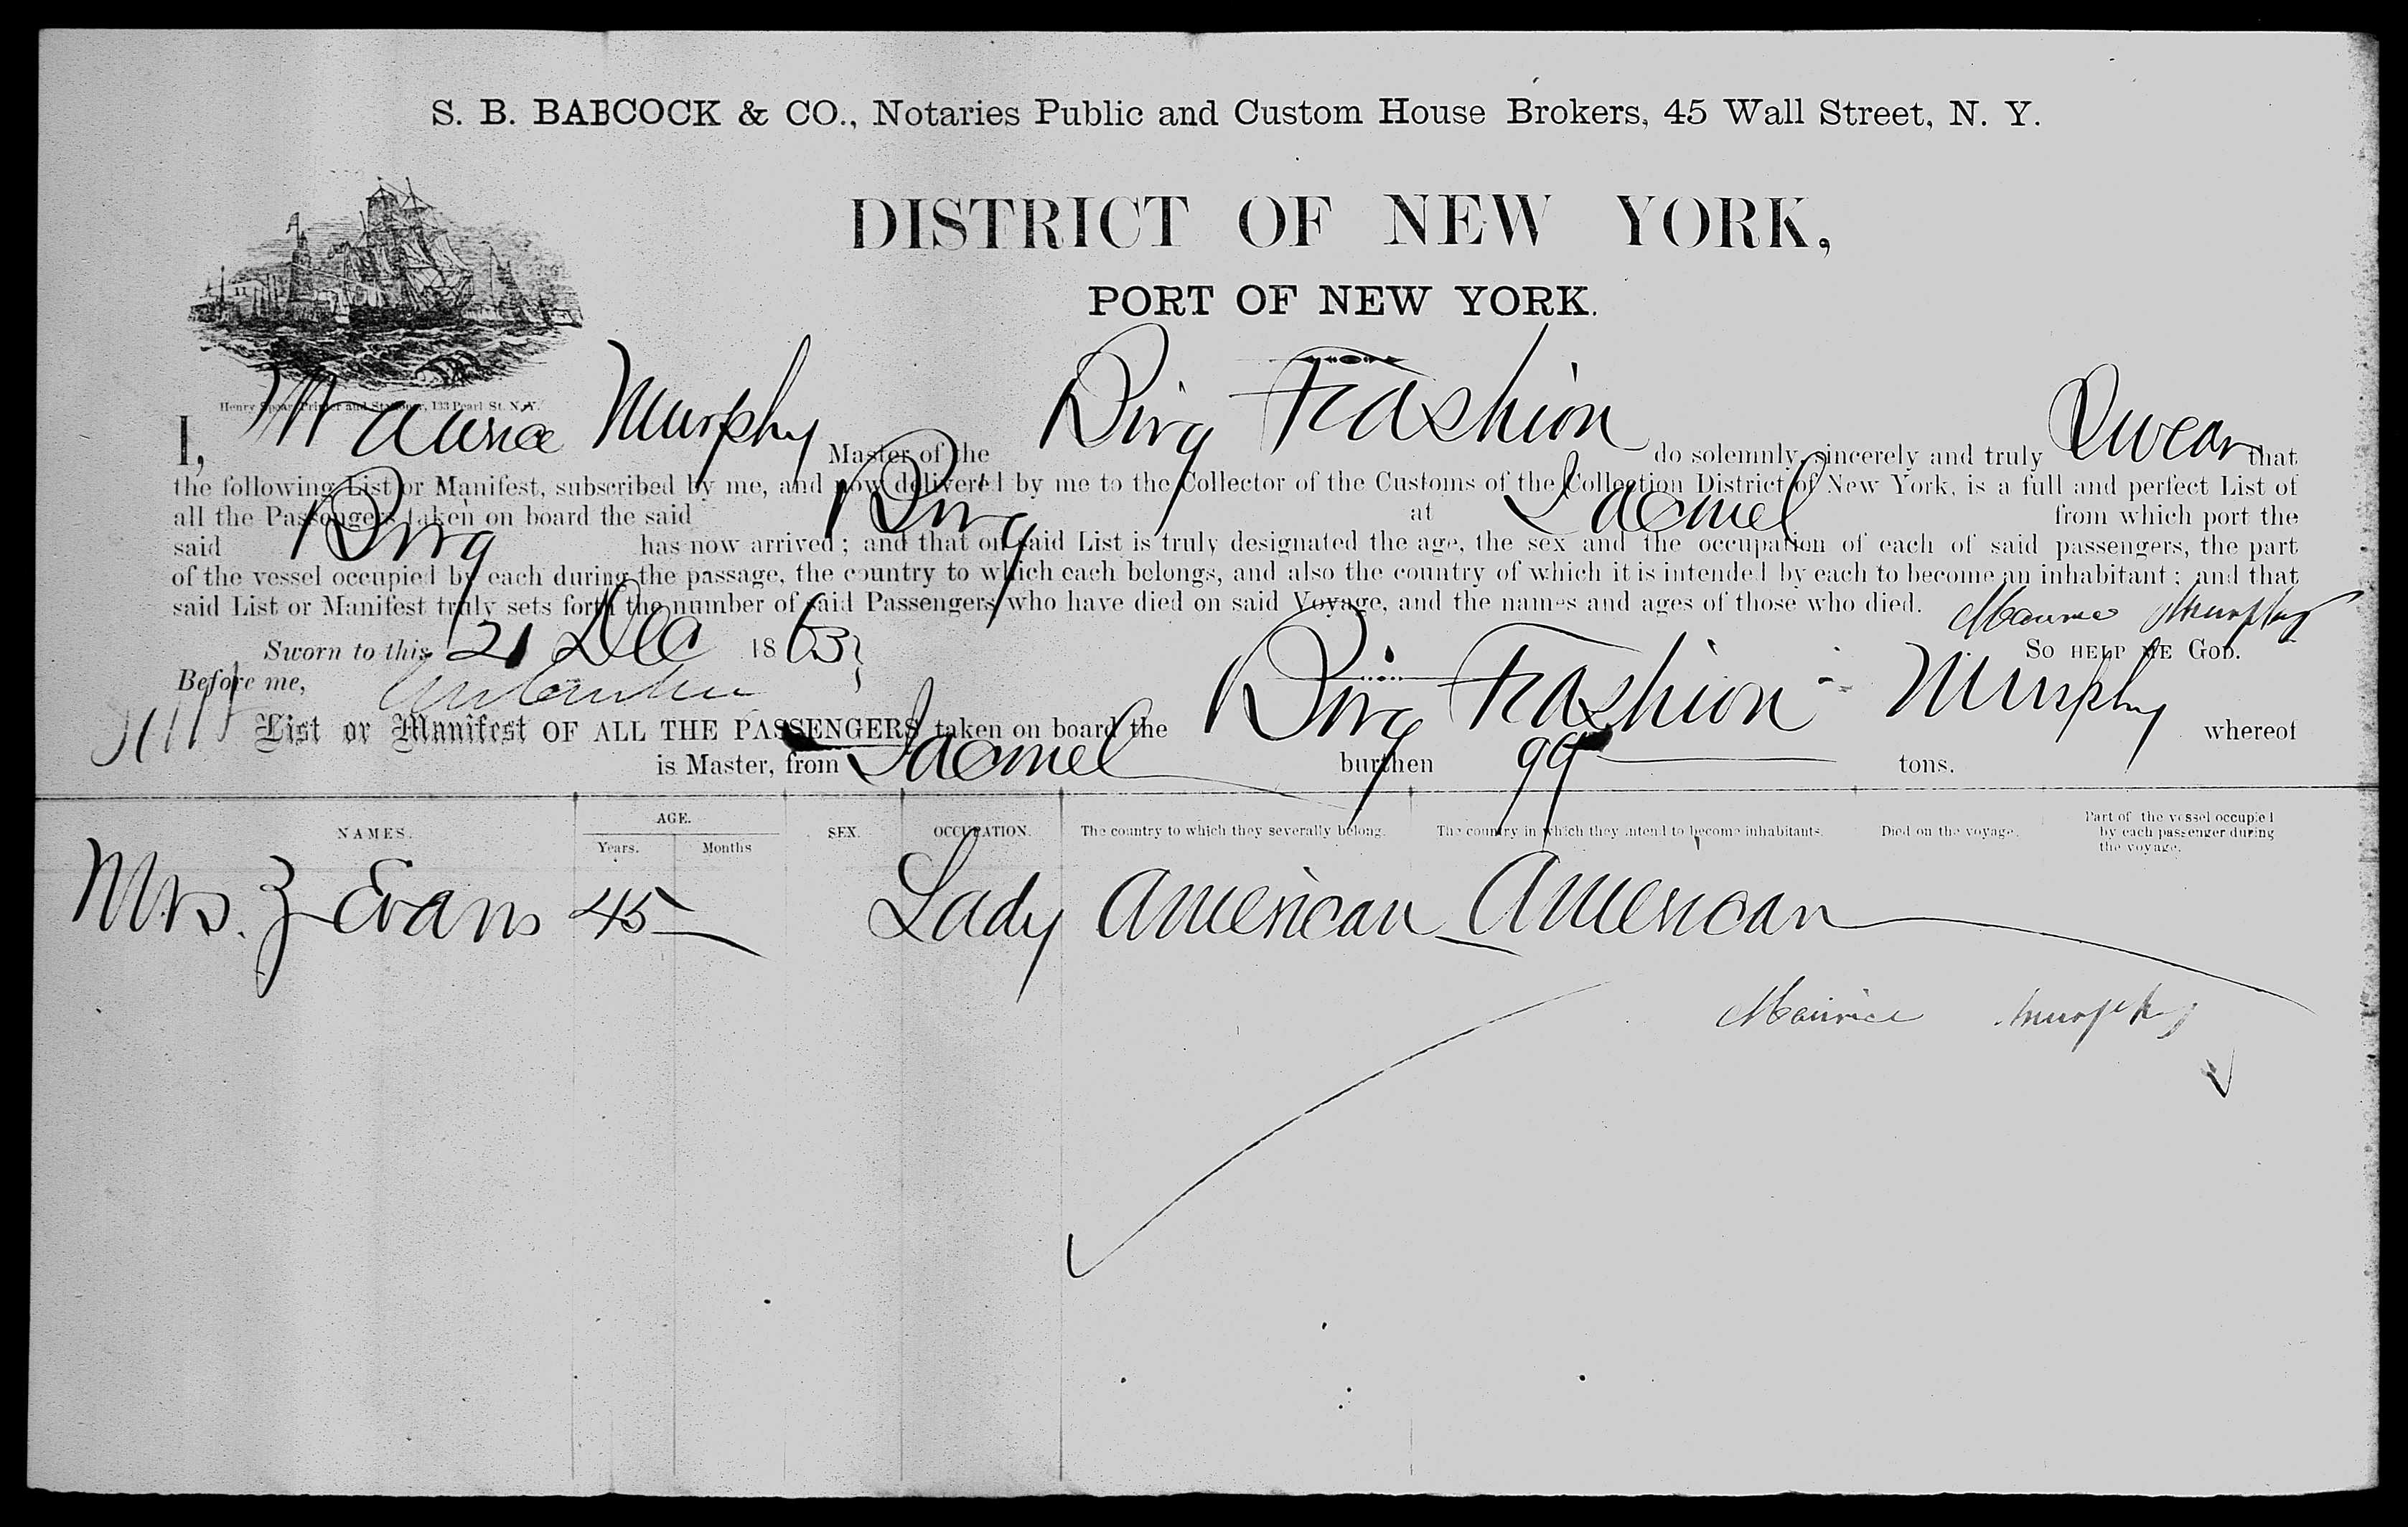 S. B. BABCOCK & CO., Notaries Public and Custom House Brokers, 45 Wall Street, N. Y.
DISTRICT OF NEW YORK,
PORT OF NEW YORK.
Henry Spear, Printer and Stationer, 133 Pearl St. N.Y.
I, Maurice Murphy Master of the Brig Fashion do solemnly, sincerely and truly Swear that
the following List or Manifest, subscribed by me, and now delivered by me to the Collector of the Customs of the Collection District of New York, is a full and perfect List of
all the Passengers taken on board the said Brig at Jacmel from which port the
said Brig has now arrived; and that on said List is truly designated the age, the sex and the occupation of each of said passengers, the part
of the vessel occupied by each during the passage, the country to which each belongs, and also the country of which it is intended by each to become an inhabitant; and that
said List or Manifest truly sets forth the number of said Passengers who have died on said Voyage, and the names and ages of those who died. Maurice Murphy
Sworn to this 21 Dec 1863 So HELP ME GOD.
Before me,
List or Manifest OF ALL THE PASSENGERS taken on board the Brig Fashion Murphy whereof
is Master, from Jacmel burthen 99 tons.
NAMES. AGE. Years. Months SEX. OCCUPATION. The country to which they severally belong. The country in which they intend to become inhabitants. Died on the voyage. Part of the vessel occupied by each passenger during the voyage.
Mrs. Z Evans 45 Lady American American
Maurice Murphy